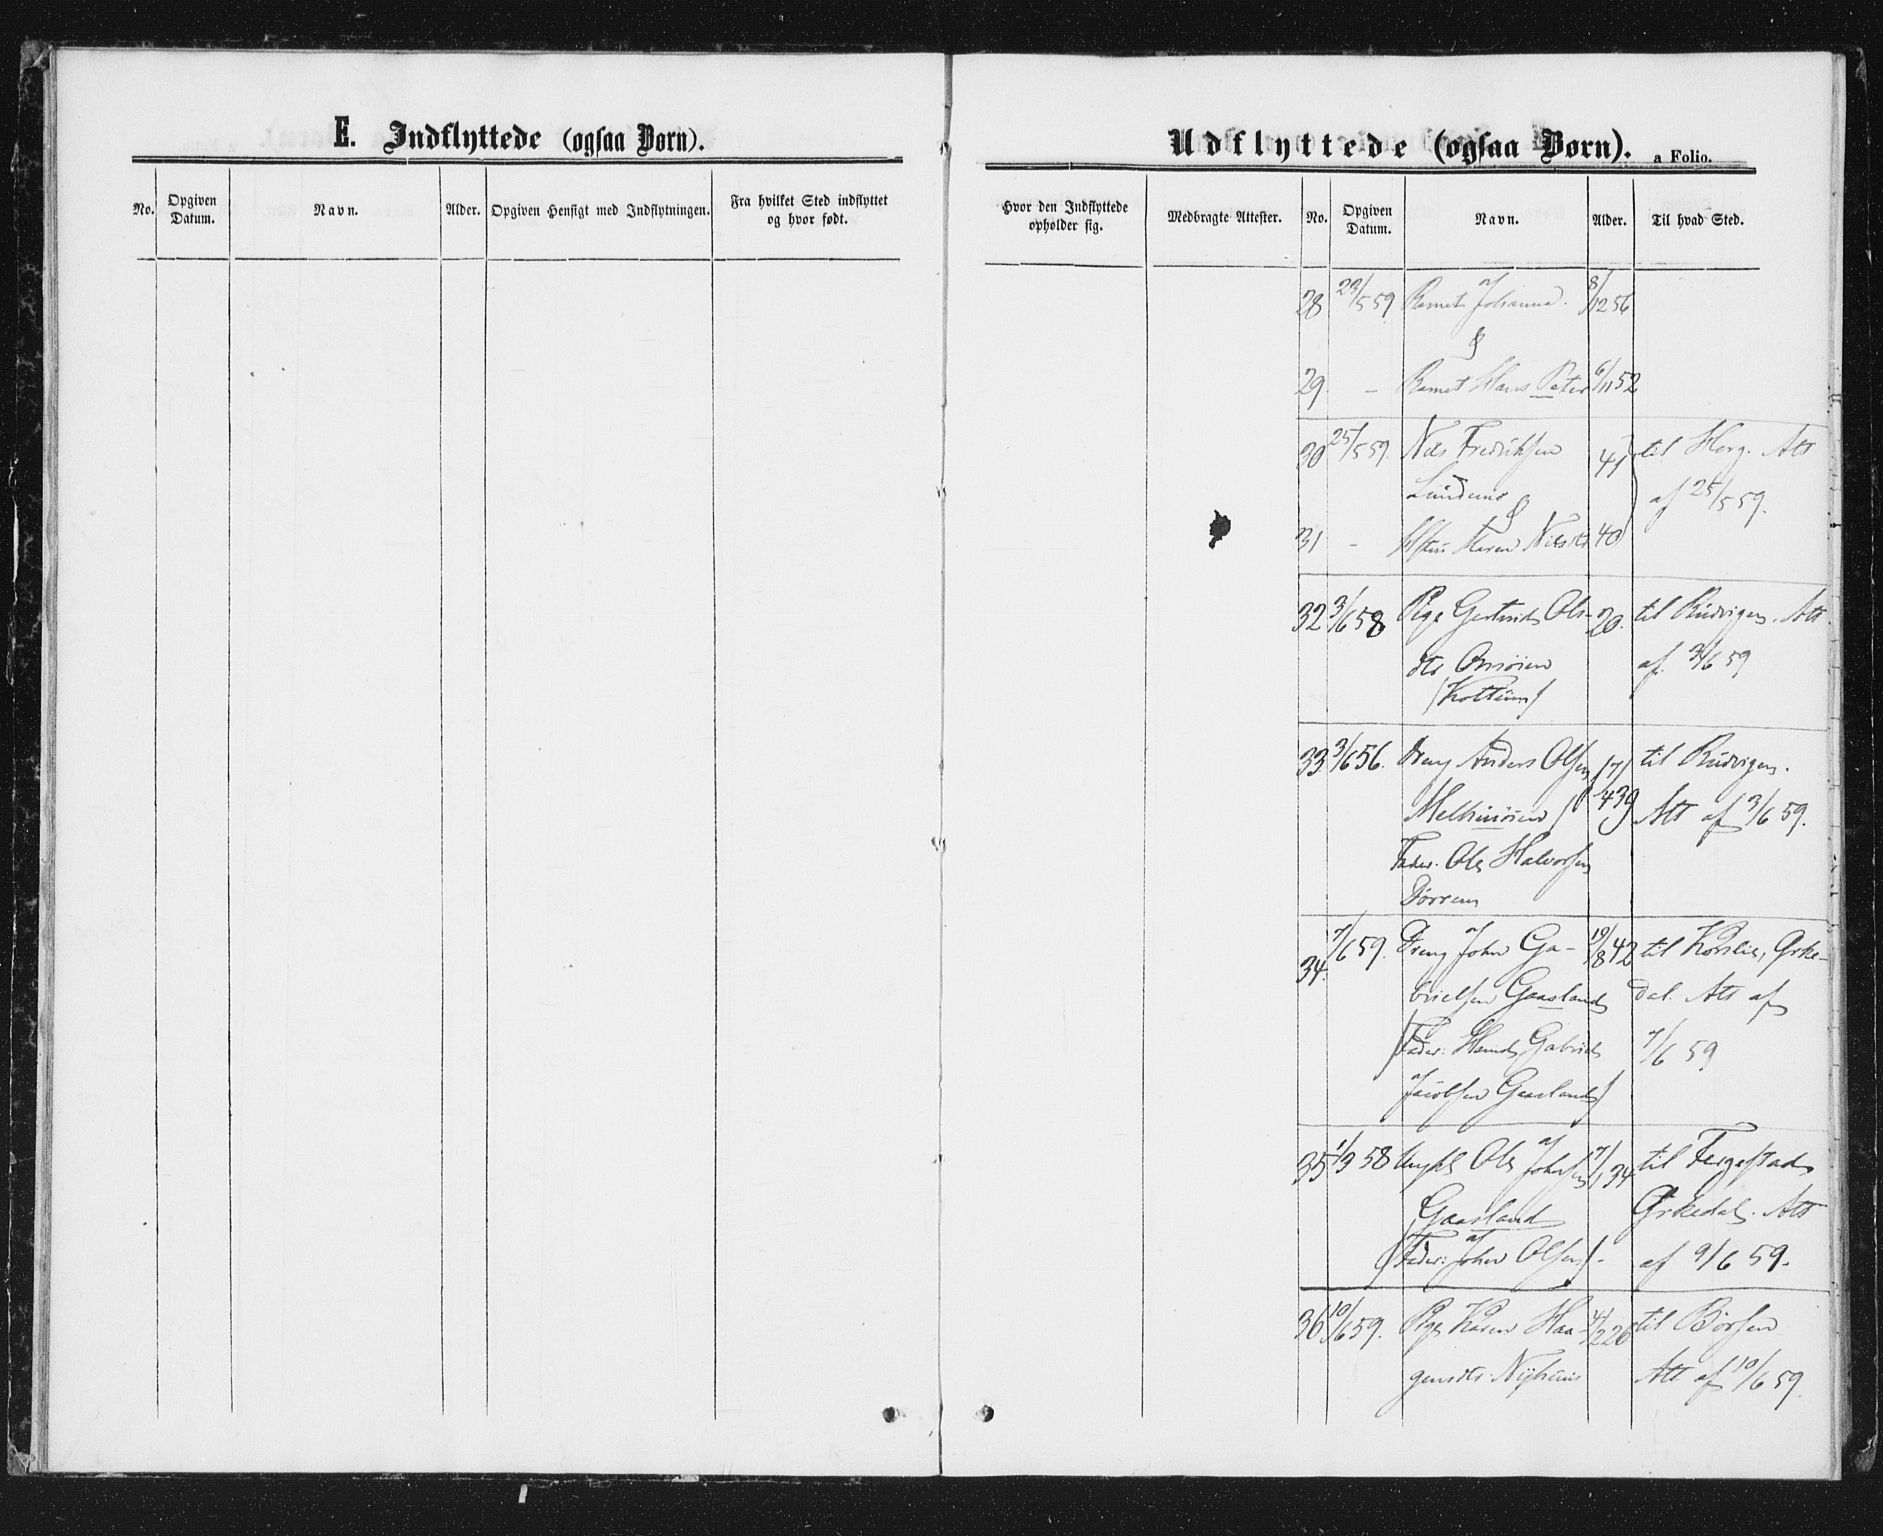 E. Indflyttede (ogsaa Børn).
No.
Opgiven Datum.
Navn.
Alder.
Opgiven Hensigt med Indflytningen.
Fra hvilket Sted indflyttet og hvor født.
Udflyttede (ogsaa Børn). a Folio.
Hvor den Indflyttede opholder sig.
Medbragte Attester.
No.
Opgiven Datum.
Navn.
Alder.
Til hvad Sted.
28 23/5 59 Barnet Johanna. 8/12 56
&
29. - Barnet Hans Peter 6/11 52
30 25/5 59. Nils Fredriksen 41 til Horg. Att
af 25/5 59.
&
31 - Maren Nilsdtr 40
32 3/6 58 Pige Gertrud Ols- 20. til Att
dtr af 3/6 59
33 3/6 56. Dreng Anders Olsen til
Att af 3/6 59.
Fader: Ole Halvorsen
34. 7/6 59. Dreng John Ga- 19/8 42 til Orke-
brielsen Gaasland dal. Att af
(Fader: Gabriel 7/6 59
Jacobsen Gaasland)
35 1/3 58 Ungkl Ole Johnsen 7/1 34 til
Gaasland Orkedal. Att
(Fader: John Olsen). af 9/6 59.
36 10/6 59. Pige Karen Haa- til Børsen
gensdtr Nyhuus Att af 10/6 59.